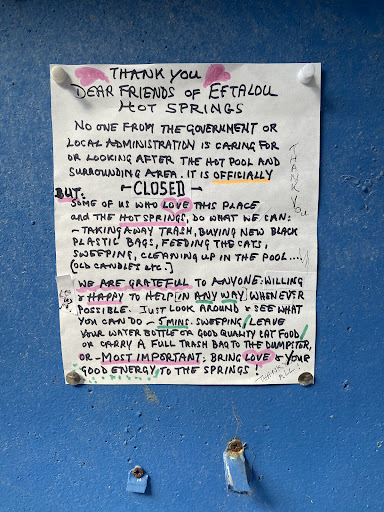 THANK YOU
DEAR FRIENDS OF EFTALOU
HOT SPRINGS
NO ONE FROM THE GOVERNMENT OR
LOCAL ADMINISTRATION IS CARING FOR
OR LOOKING AFTER THE HOT POOL AND
SURROUNDING AREA. IT IS OFFICIALLY
- CLOSED -
BUT:
SOME OF US WHO LOVE THIS PLACE
and THE HOT SPRINGS, DO WHAT WE CAN:
- TAKING AWAY TRASH, BUYING NEW BLACK
PLASTIC BAGS, FEEDING THE CATS,
SWEEPING, CLEANING UP IN THE POOL....
(OLD CANDLES etc.)
THANK YOU
WE ARE GRATEFUL TO ANYONE: WILLING
& HAPPY TO HELP IN ANY WAY WHENEVER
POSSIBLE. JUST LOOK AROUND & SEE WHAT
YOU CAN DO - 5 MINS. SWEEPING / LEAVE
YOUR WATER BOTTLE OR GOOD QUALITY CAT FOOD/
OR CARRY A FULL TRASH BAG TO THE DUMPSTER,
OR - MOST IMPORTANT: BRING LOVE & YOUR
GOOD ENERGY TO THE SPRINGS!
THANK
ALL!